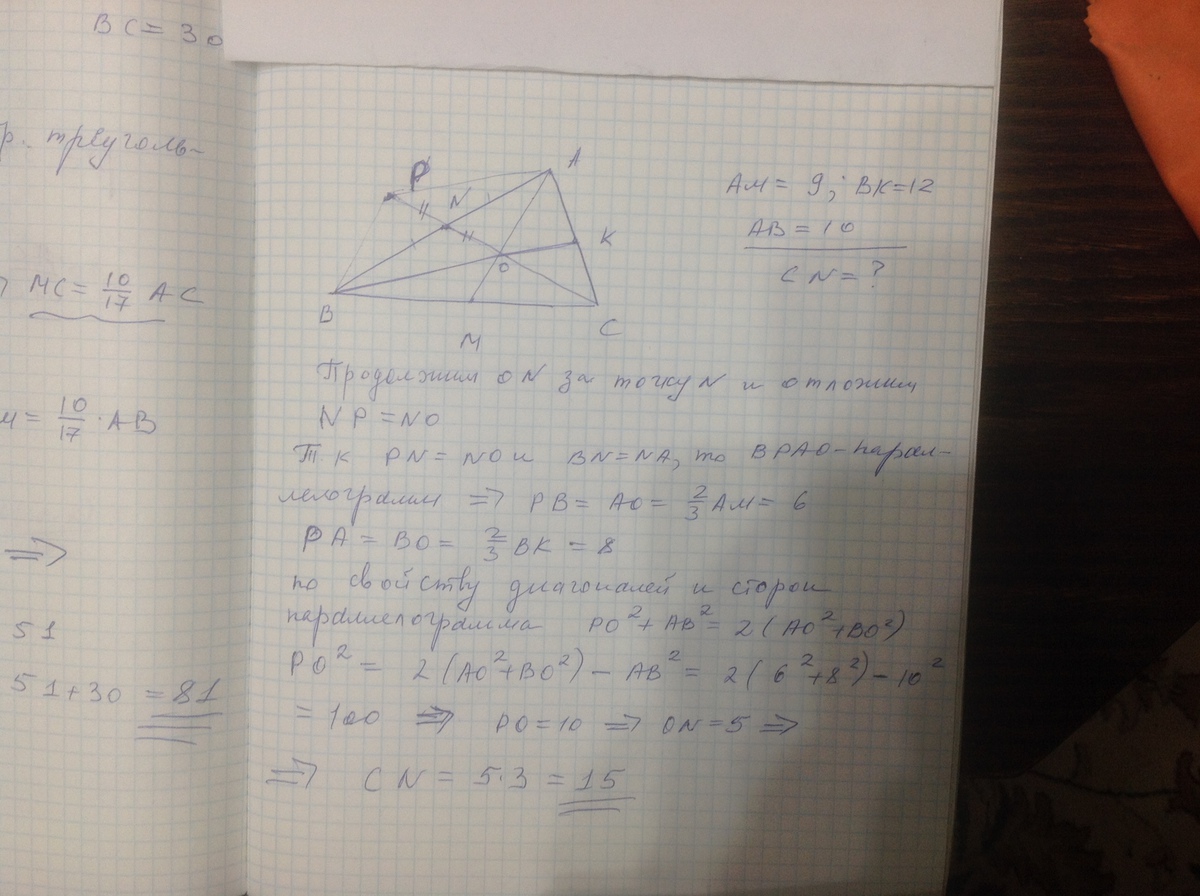 BC = 30
р. треуголь-
MC = 10/17 AC
M = 10/17 · AB
⇒
51
51+30 = 81
P
A
N
K
O
B
C
M
AM = 9; BK=12
AB = 10
CN = ?
Продолжим ON за точку N и отложим
NP = NO
Т.к PN = NO и BN=NA, то BPAO-парал-
лелограмм ⇒ PB = AO = 2/3 AM = 6
PA = BO = 2/3 BK = 8
по свойству диагоналей и сторон
параллелограмма PO² + AB² = 2(AO²+BO²)
PO² = 2(AO²+BO²) − AB² = 2(6²+8²)−10²
= 100 ⇒ PO=10 ⇒ ON=5 ⇒
⇒ CN = 5·3 = 15